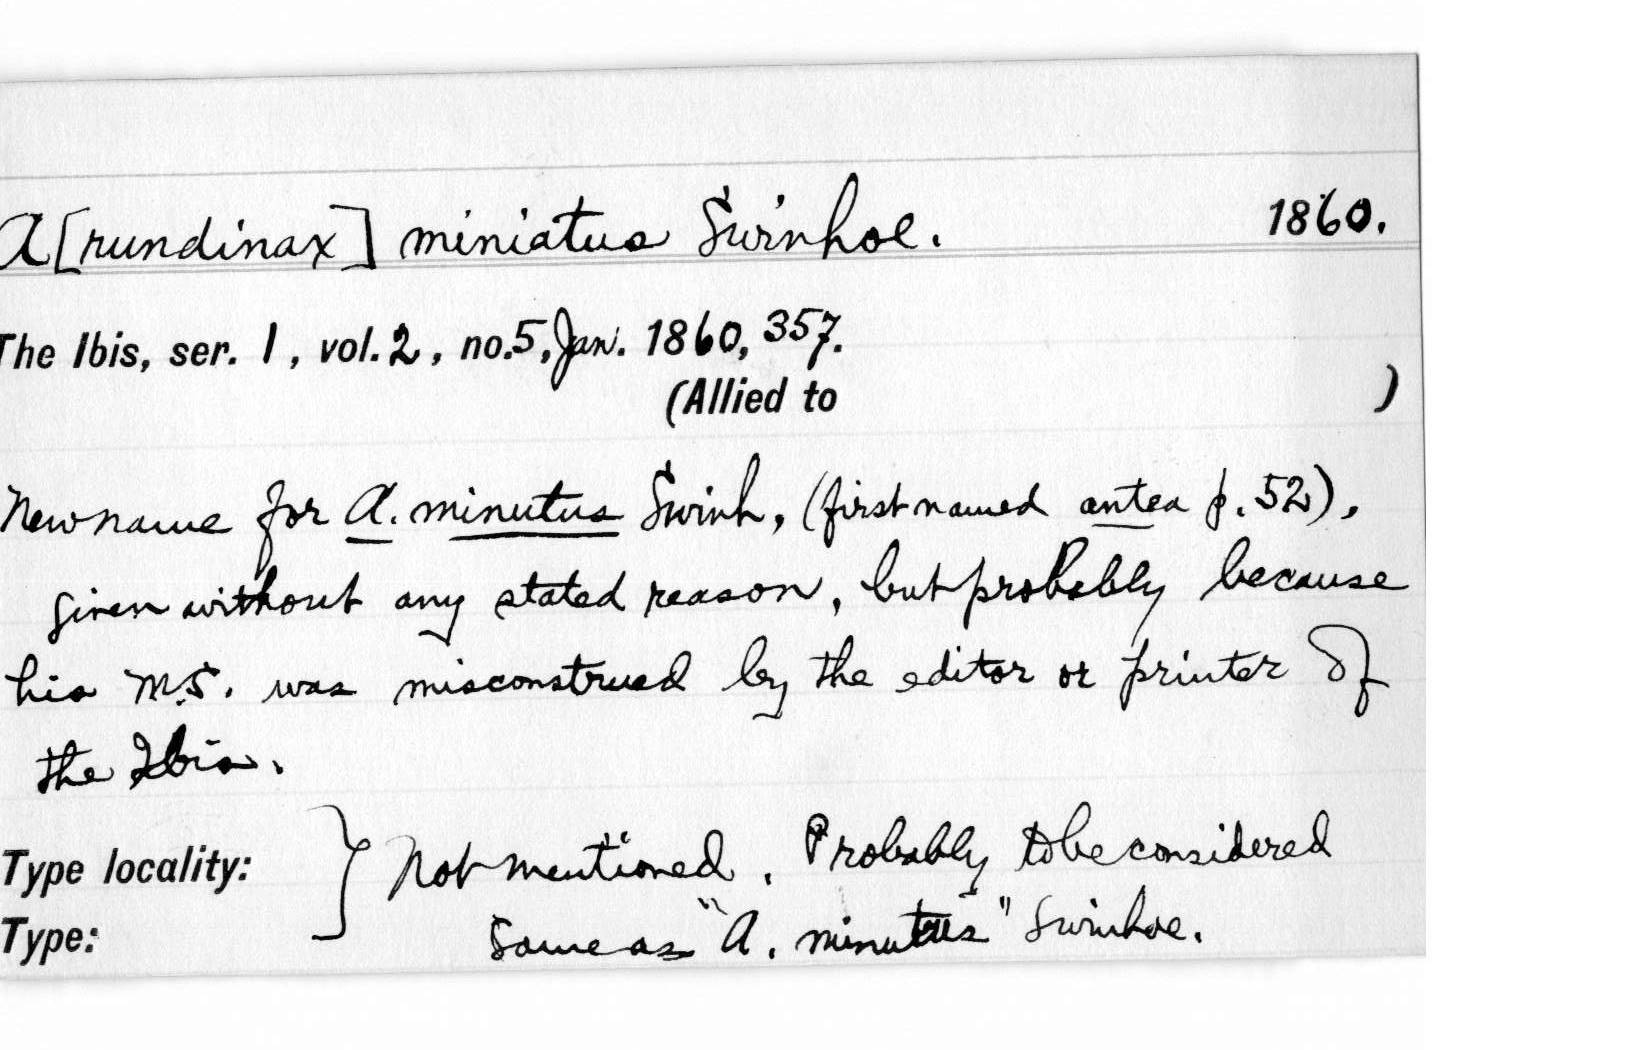 A[rundinax] miniatus Swinhoe. 1860.
The Ibis, ser. 1, vol. 2, no. 5, Jan. 1860, 357.
(Allied to )
New name for A. minutus Swinh, (first named antea p. 52),
given without any stated reason, but probably because
his MS. was misconstrued by the editor or printer of
the Ibis.
Type locality: } Not mentioned. Probably to be considered
Type: same as "A. minutus" Swinhoe.